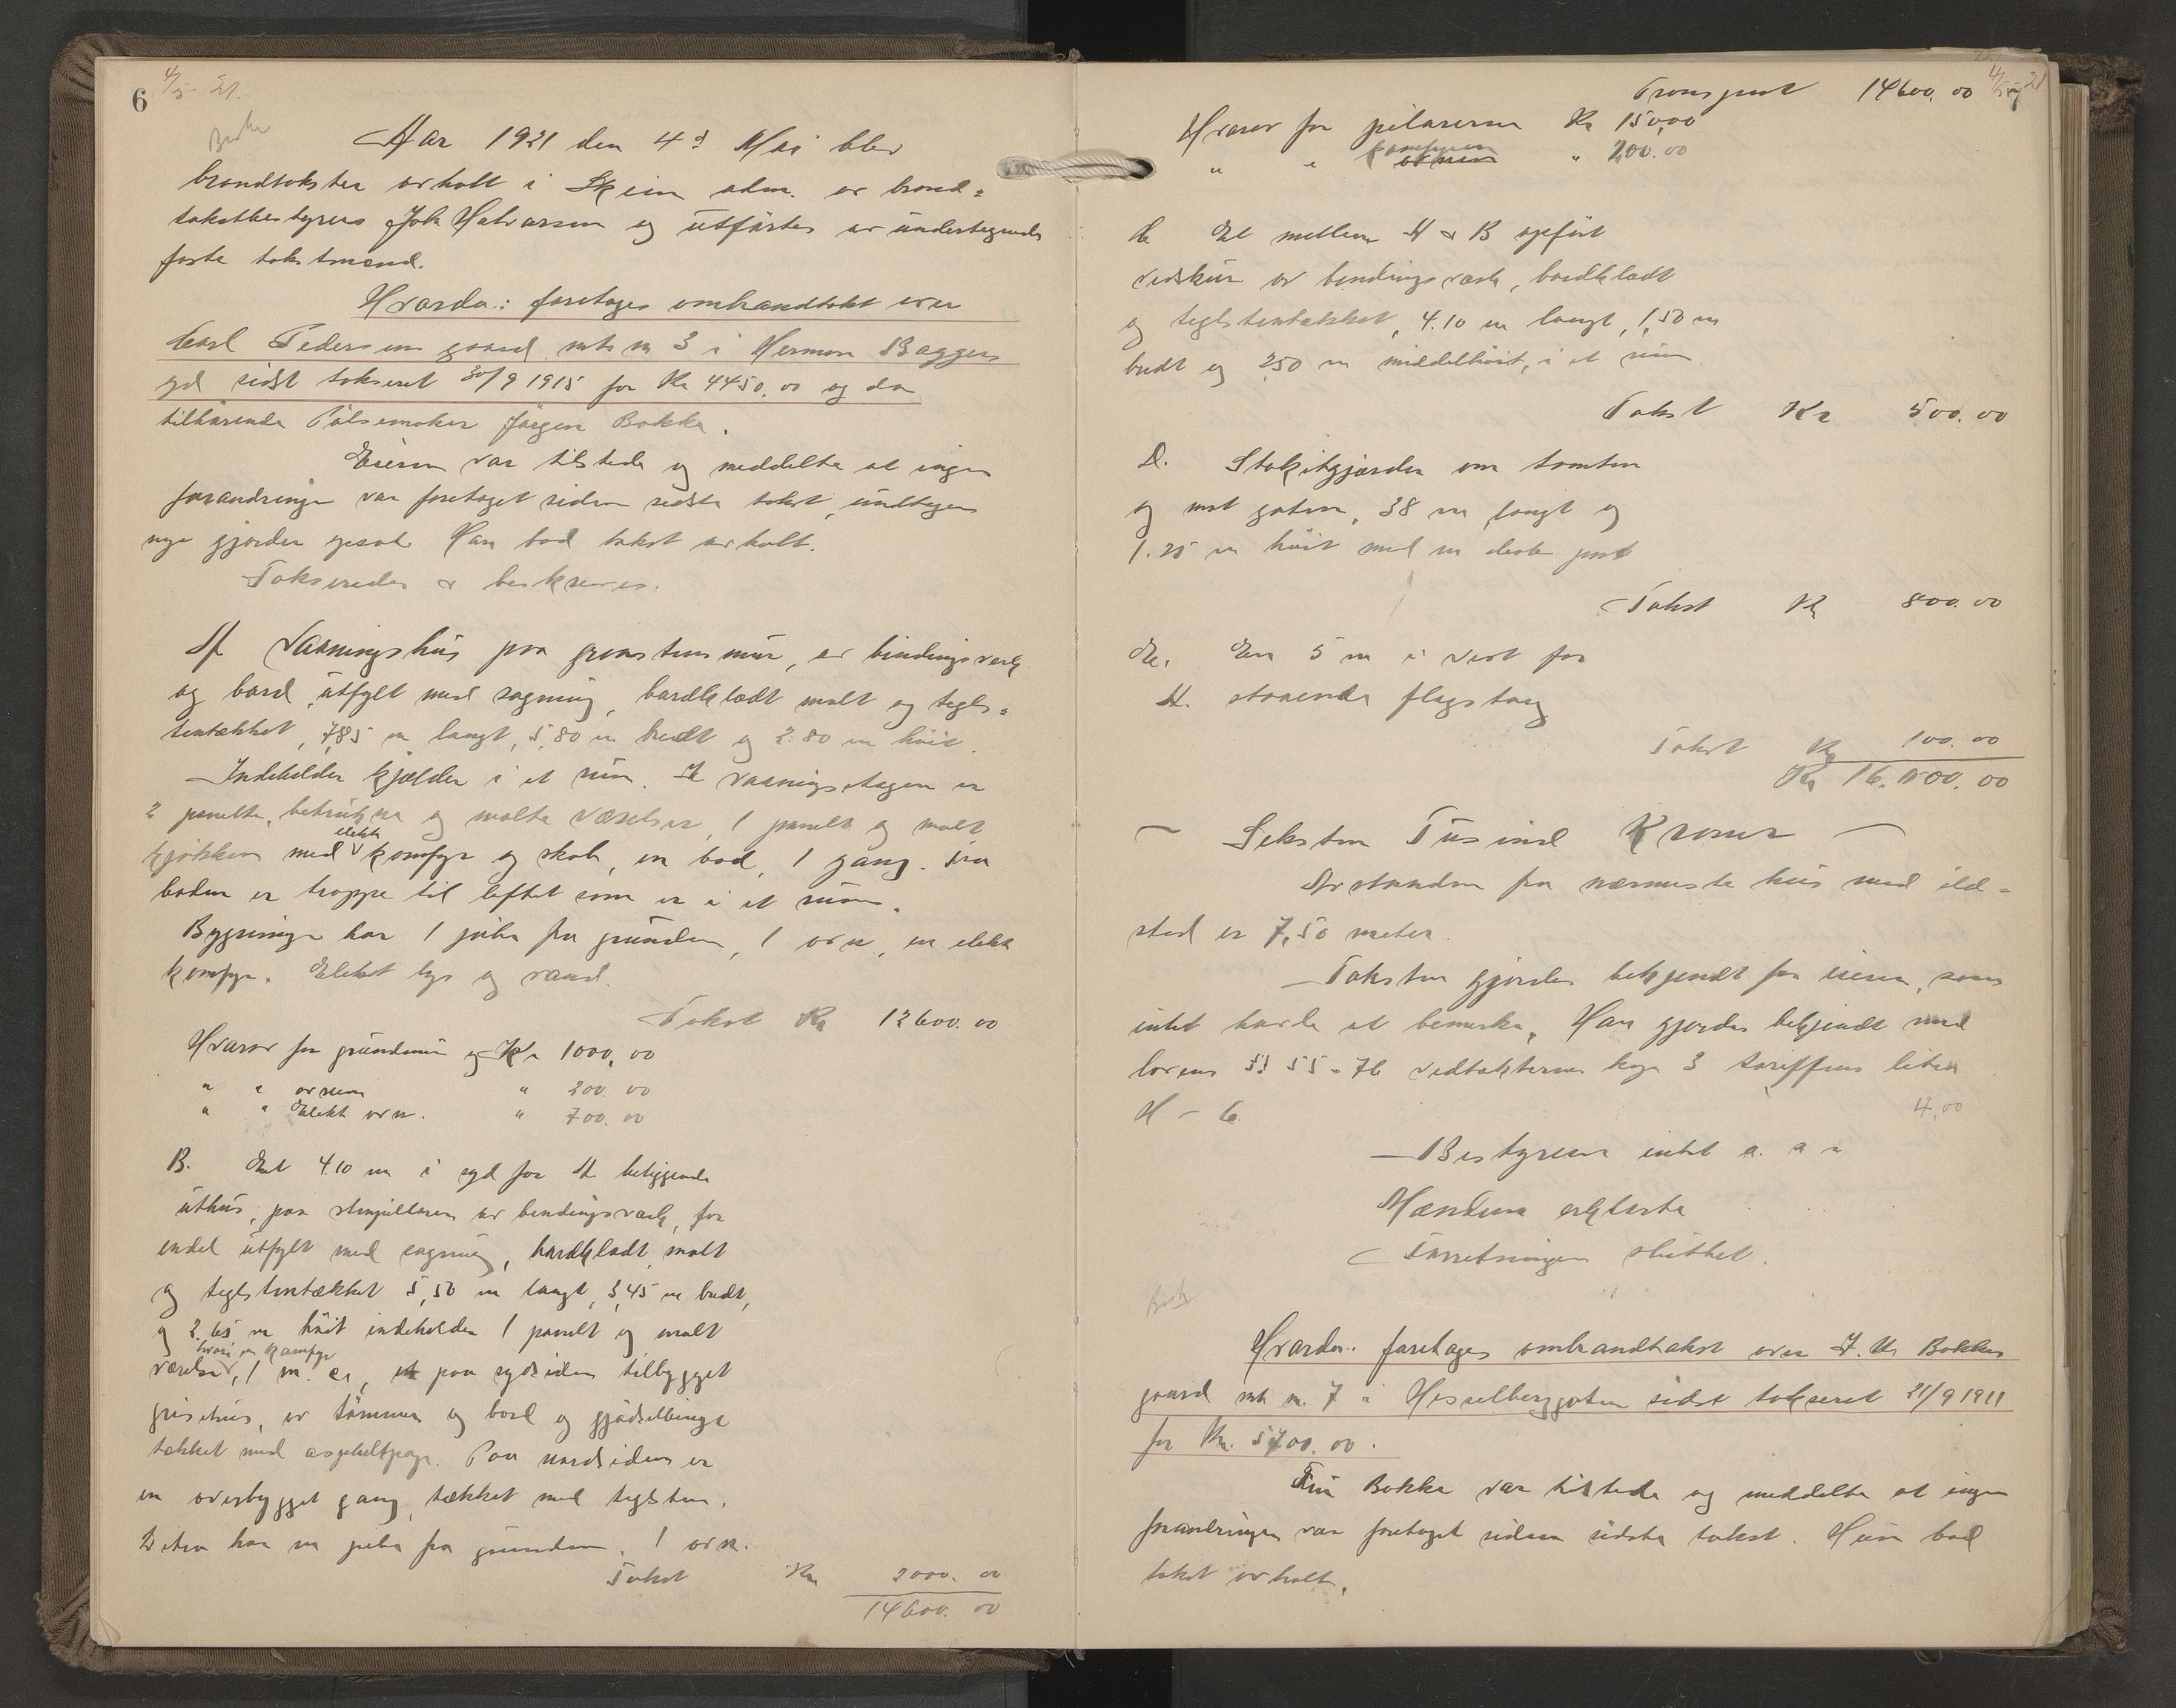 6 4/5 21.
Aar 1921 den 4de Mai blev
brandtakster avholt i Skien adm. av brand=
takstbestyrer Joh Halvorsen og utførtes av undertegnede
faste takstmænd.
Hvorda: foretages ombrandtakst over
Carl Pedersens gaard mtr nr 3 i Herman Baggers
gd sidst takseret 30/9 1915 for Kr 4450.00 og da
tilhørende Pølsemaker Jørgen Bakka.
Eieren var tilstede og meddelte at ingen
forandringer var foretaget siden sidste takst, undtagen
nye gjærder opsat. Han bad takst avholt.
Takseredes & beskreves.
A Vaaningshus paa graastensmur, av bindingsverk
og bord utfylt med sagmug, bordklædt malt og tegls=
tentækket, 7,85 m langt, 5,80 m bredt og 2.80 m høit.
Indeholder kjælder i et rum. I vaaningsetagen er
2 panelte, betrukne og malte værelser, 1 panelt og malt
kjøkken med elektr komfyr og skab, en bod, 1 gang. Fra
boden er trappe til loftet som er i et rum.
Bygningen har 1 pibe fra grunden, 1 ovn, en elektr
komfyr. Elektrt lys og vand.
Takst Kr 12600.00
Hvorav for grundmur Kr 1000,00
" " ovnen " 200.00
" " Elektr ovn. " 700.00
B. Et 4.10 m i syd for A beliggende
uthus, paa stenpillarer av bindingsverk, for
endel utfylt med sagmug, bordklædt malt
og teglstentækket 5,50 m langt, 3,45 m bredt,
og 2.65 m høit indeholder 1 panelt og malt
værelse, hvori en komfyr, 1 m. a, paa sydsiden tilbygget
grisehus, av tømmer og bord og gjødselbinge
tækket med asphaltpap. Paa nordsiden er
en overbygget gang, tækket med teglsten.
Dette har en pibe fra grunden, 1 ovn.
Takst Kr 2000.00
14600.00
Transport 14600.00 4/5 21
Hvorav for pilarerne Kr 150,00
" " komfyren " 200.00
C. Et mellem A & B opført
vedskur av bindingsverk, bordklædt
og teglstentækket, 4.10 m langt, 1,50 m
bredt og 2,50 m middelhøit, i et rum
Takst Kr 500.00
D. Stakitgjærder om tomten
og mot gaten, 38 m langt og
1.25 m høit med en port
Takst Kr 800.00
E. En 5 m i vest for
A. staaende flagstang
Takst Kr 100.00
Kr 16.000.00
Seksten Tusind Kroner
Avstanden fra nærmeste hus med ild=
sted er 7,50 meter.
Taksten gjordes bekjendt for eieren, som
intet havde at bemerke. Han gjordes bekjendt med
lovens §§ 55 - 76 vedtækternes kap 3 tariffens litra
A - C. 4,00
Bestyreren intet a. a
Mændene erklærte
Forretningen sluttet.
Hvorda: foretages ombrandtakst over J. Chr Bakkes
gaard mtr nr. 7 i Hesselberggaten sidst takseret 21/9 1911
for Kr. 5700.00.
Fru Bakke var tilstede og meddelte at ingen
forandringer var foretaget siden sidste takst. Hun bad
takst avholt.